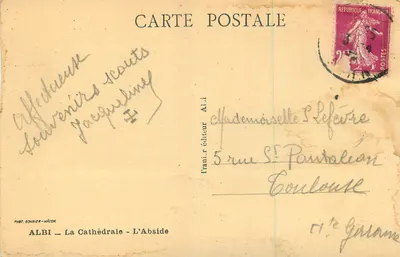 CARTE POSTALE
REPUBLIQUE FRANÇAISE
POSTES
Affectueux
souvenirs scouts
Jacqueline
Mademoiselle S Lefèvre
5 rue St Pantaléon
Toulouse
Hte Garonne
Franier éditeur Albi
ALBI — La Cathédrale - L'Abside